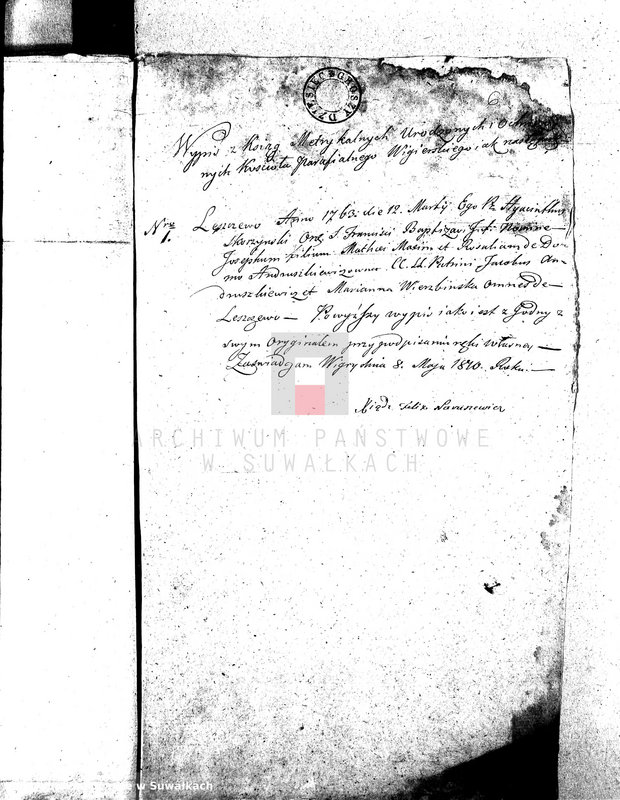 DZIESIĘĆ GROSZY
6
Wypis z Ksiąg Metrykalnych Urodzonych i
nych Kościoła Parafialnego Wigierskiego iak
Nro 1. Leszczewo Anno 1763. die 12. Martij Ego Pr Hyacinthus
Skarzynski Ord. S. Francisci Baptizavi I. f. Nomine
Josephum filium Mathei Maxim et Rosaliam de Do-
mo Andruszkiewiczowna LL. Patrini Jacobus An-
druszkiewicz et Marianna Wierzbinska omnes de
Leszczewo — Powyższy wypis iako iest zgodny z
swym Oryginałem przy podpisaniu ręki własney —
Zaświadczam Wigry dnia 8. Maja 1810. Roku. —
Xiądz Felix
ARCHIWUM PAŃSTWOWE
W SUWAŁKACH
e w Suwałkach